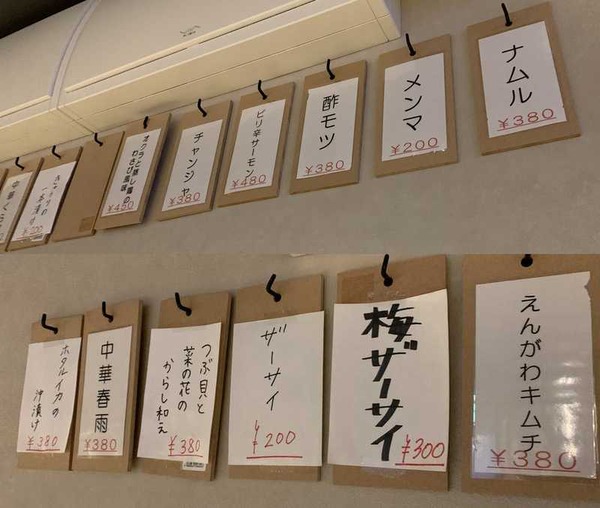 ナムル
¥380
メンマ
¥200
酢モツ
¥380
ピリ辛サーモン
¥480
チャンジャ
¥380
オクラと蒸し鶏の
わさび風味
¥480
一本漬け
えんがわキムチ
¥380
梅ザーサイ
¥300
ザーサイ
¥200
つぶ貝と
菜の花の
からし和え
¥380
中華春雨
¥380
ホタルイカの
沖漬け
¥380